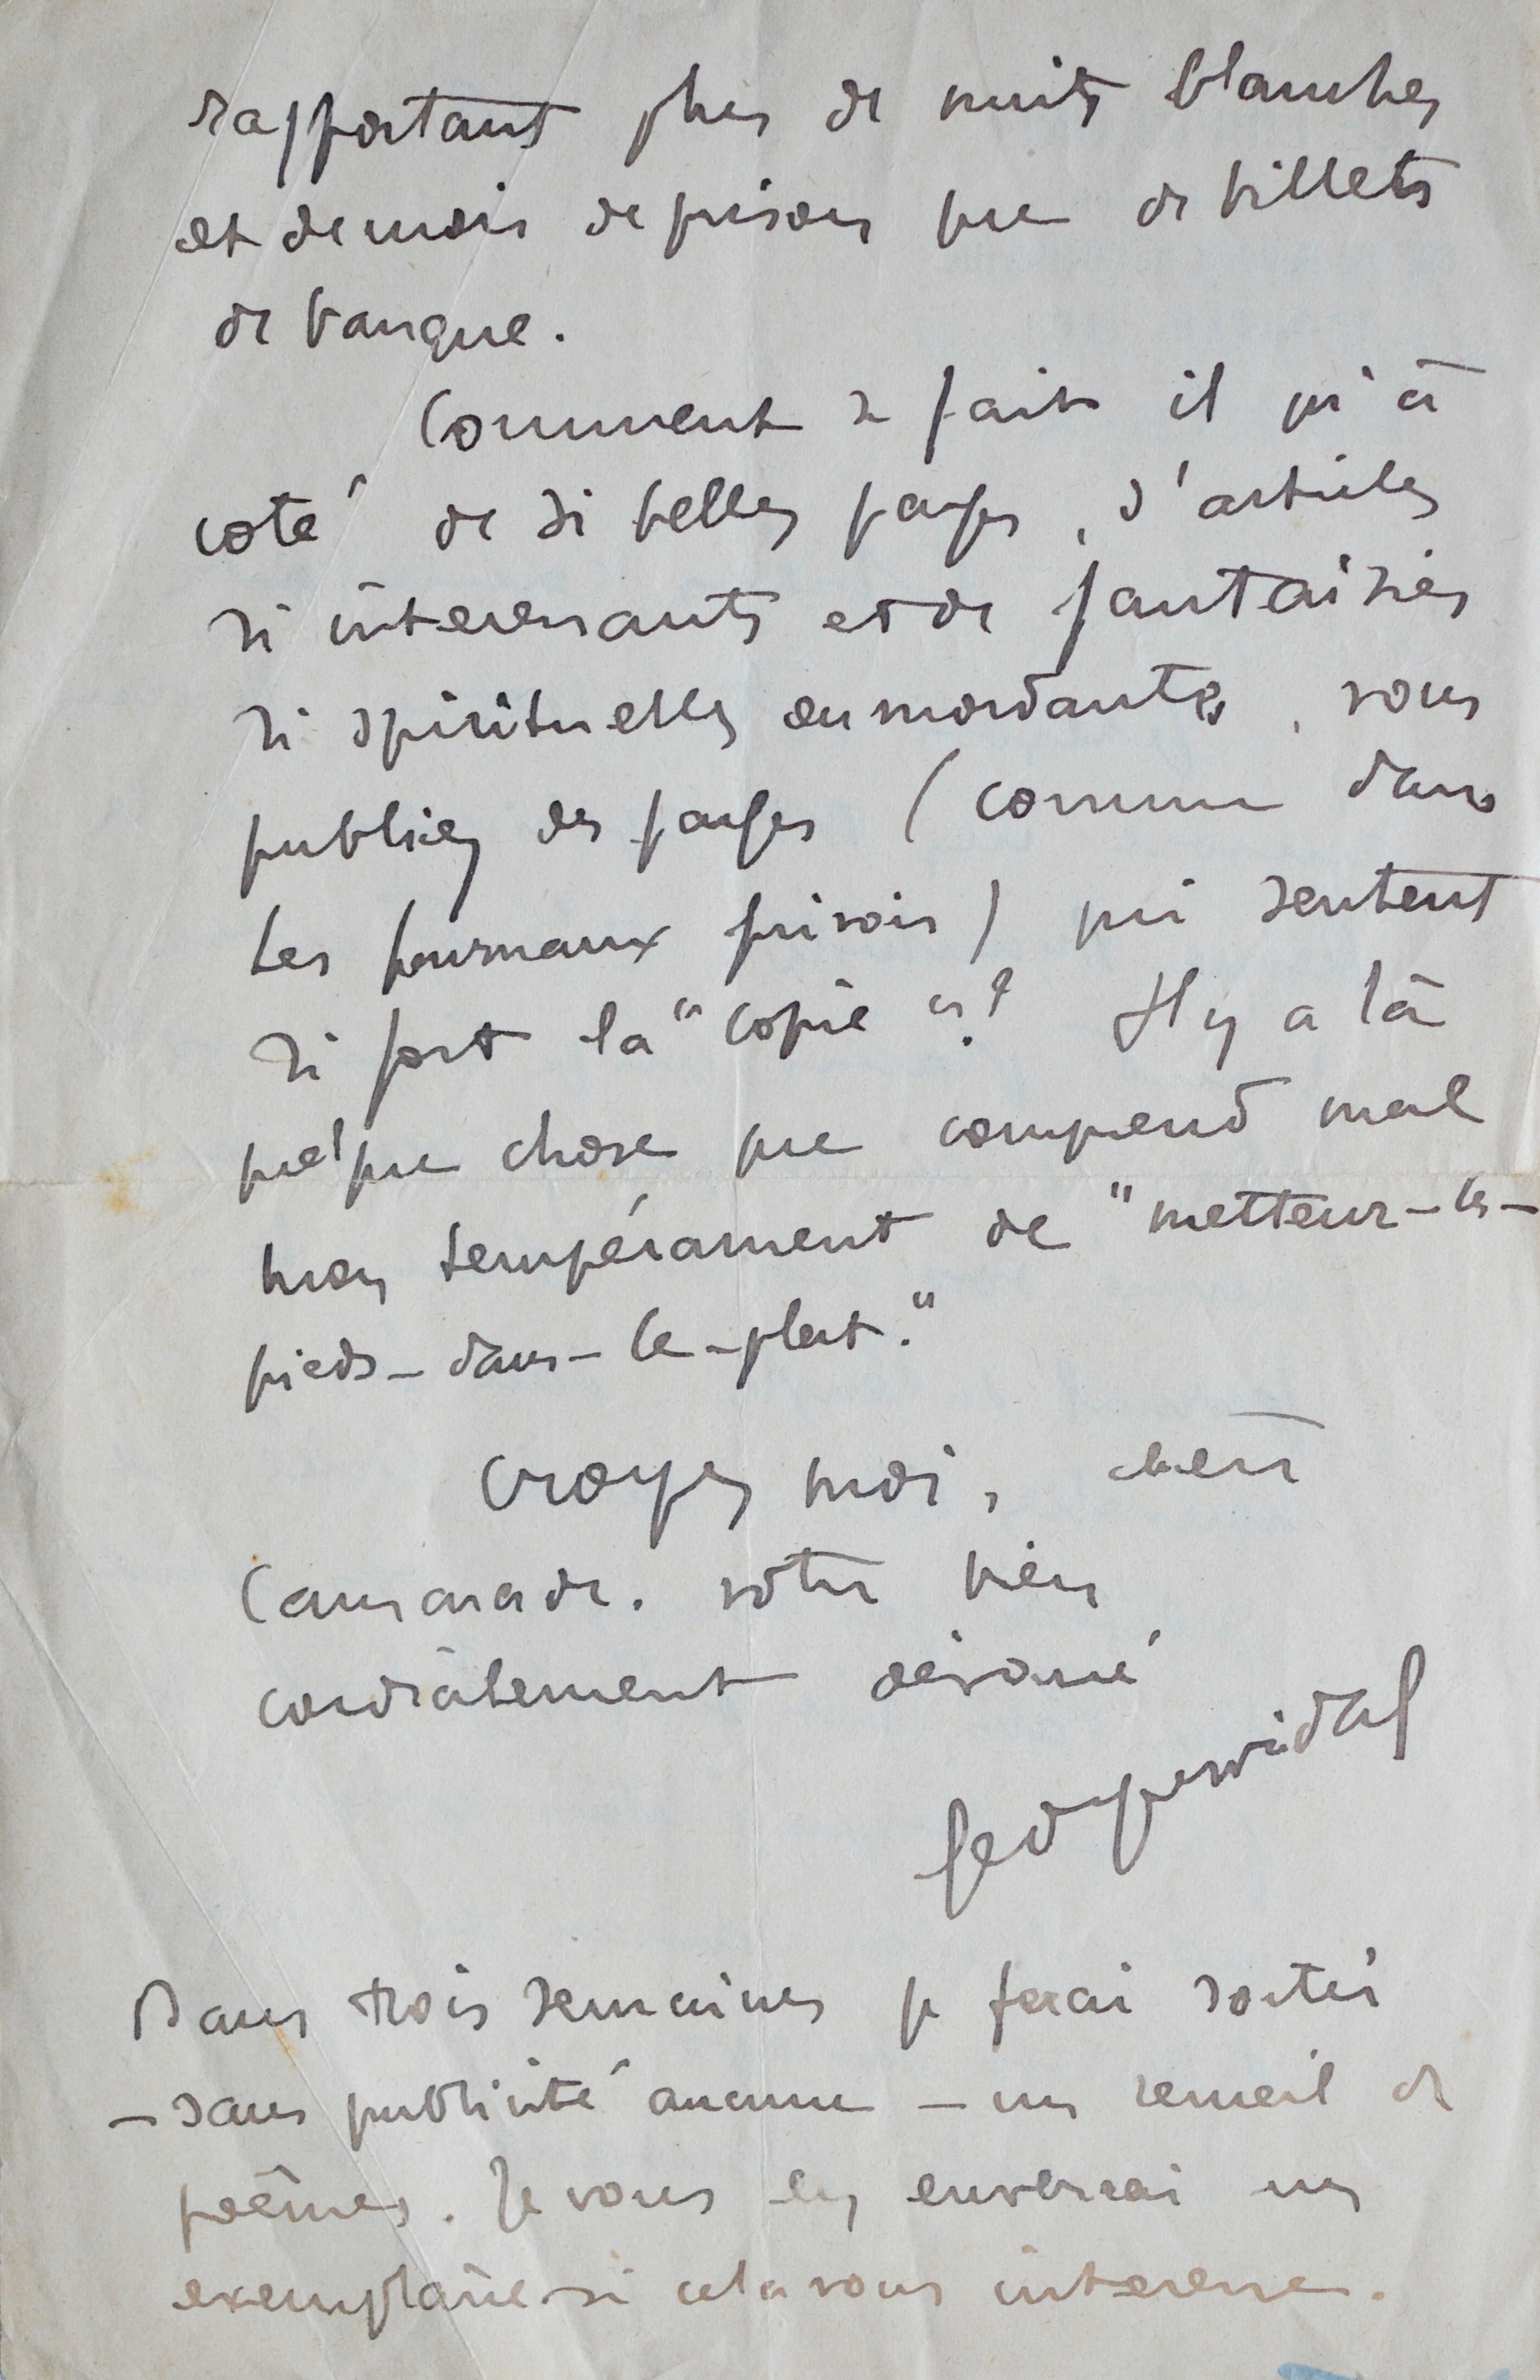 rapportant plus de nuits blanches
et de mois de prison que de billets
de banque.
Comment se fait il qu'à
coté de si belles pages, d'articles
si interessants et de fantaisies
si spirituelles ou mordantes, vous
publiez des pages (comme dans
les journaux grivois) qui sentent
si fort la "copie"? Il y a là
quelque chose que comprend mal
mon tempérament de "metteur-les-
pieds-dans-le-plat."
Croyez moi, cher
Camarade. votre bien
cordialement dévoué
Dans trois semaines je ferai sortir
- sans publicité aucune - un recueil de
poêmes. Je vous en enverrai un
exemplaire si cela vous interesse.